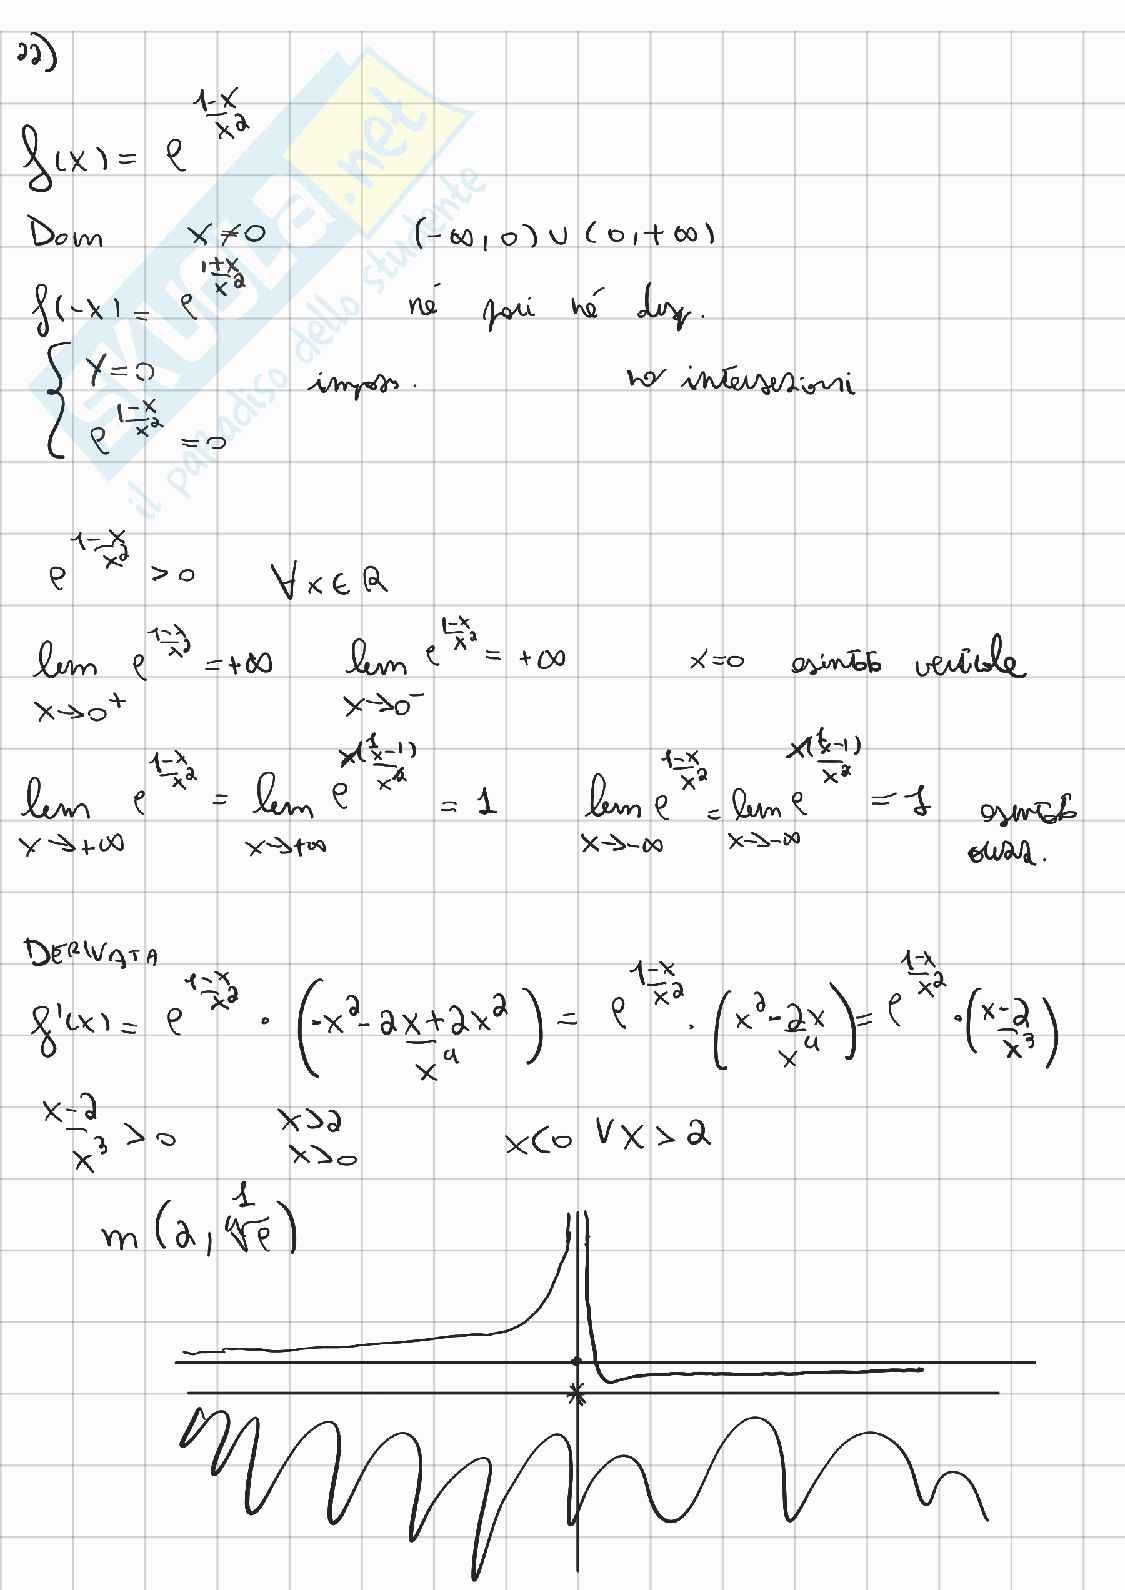 22)
f(x) = e^{\frac{1-x}{x^2}}
Dom x≠0 (-∞,0) ∪ (0,+∞)
f(-x) = e^{\frac{1+x}{x^2}} né pari né disp.
{ y=0 imposs. no intersezioni
e^{\frac{1-x}{x^2}} = 0
e^{\frac{1-x}{x^2}} > 0 ∀x∈R
lim_{x→0^+} e^{\frac{1-x}{x^2}} = +∞ lim_{x→0^-} e^{\frac{1-x}{x^2}} = +∞ x=0 asintoto verticale
lim_{x→+∞} e^{\frac{1-x}{x^2}} = lim_{x→+∞} e^{\frac{x(\frac{1}{x}-1)}{x^2}} = 1 lim_{x→-∞} e^{\frac{1-x}{x^2}} = lim_{x→-∞} e^{\frac{x(\frac{1}{x}-1)}{x^2}} = 1 asintoto
orizz.
DERIVATA
f'(x) = e^{\frac{1-x}{x^2}} · (\frac{-x^2-2x+2x^2}{x^4}) = e^{\frac{1-x}{x^2}} · (\frac{x^2-2x}{x^4}) = e^{\frac{1-x}{x^2}} · (\frac{x-2}{x^3})
\frac{x-2}{x^3} > 0 x>2 x<0 ∨ x>2
x>0
m (2, \frac{1}{\sqrt[4]{e}})
SKUOLA.net
il paradiso dello studente